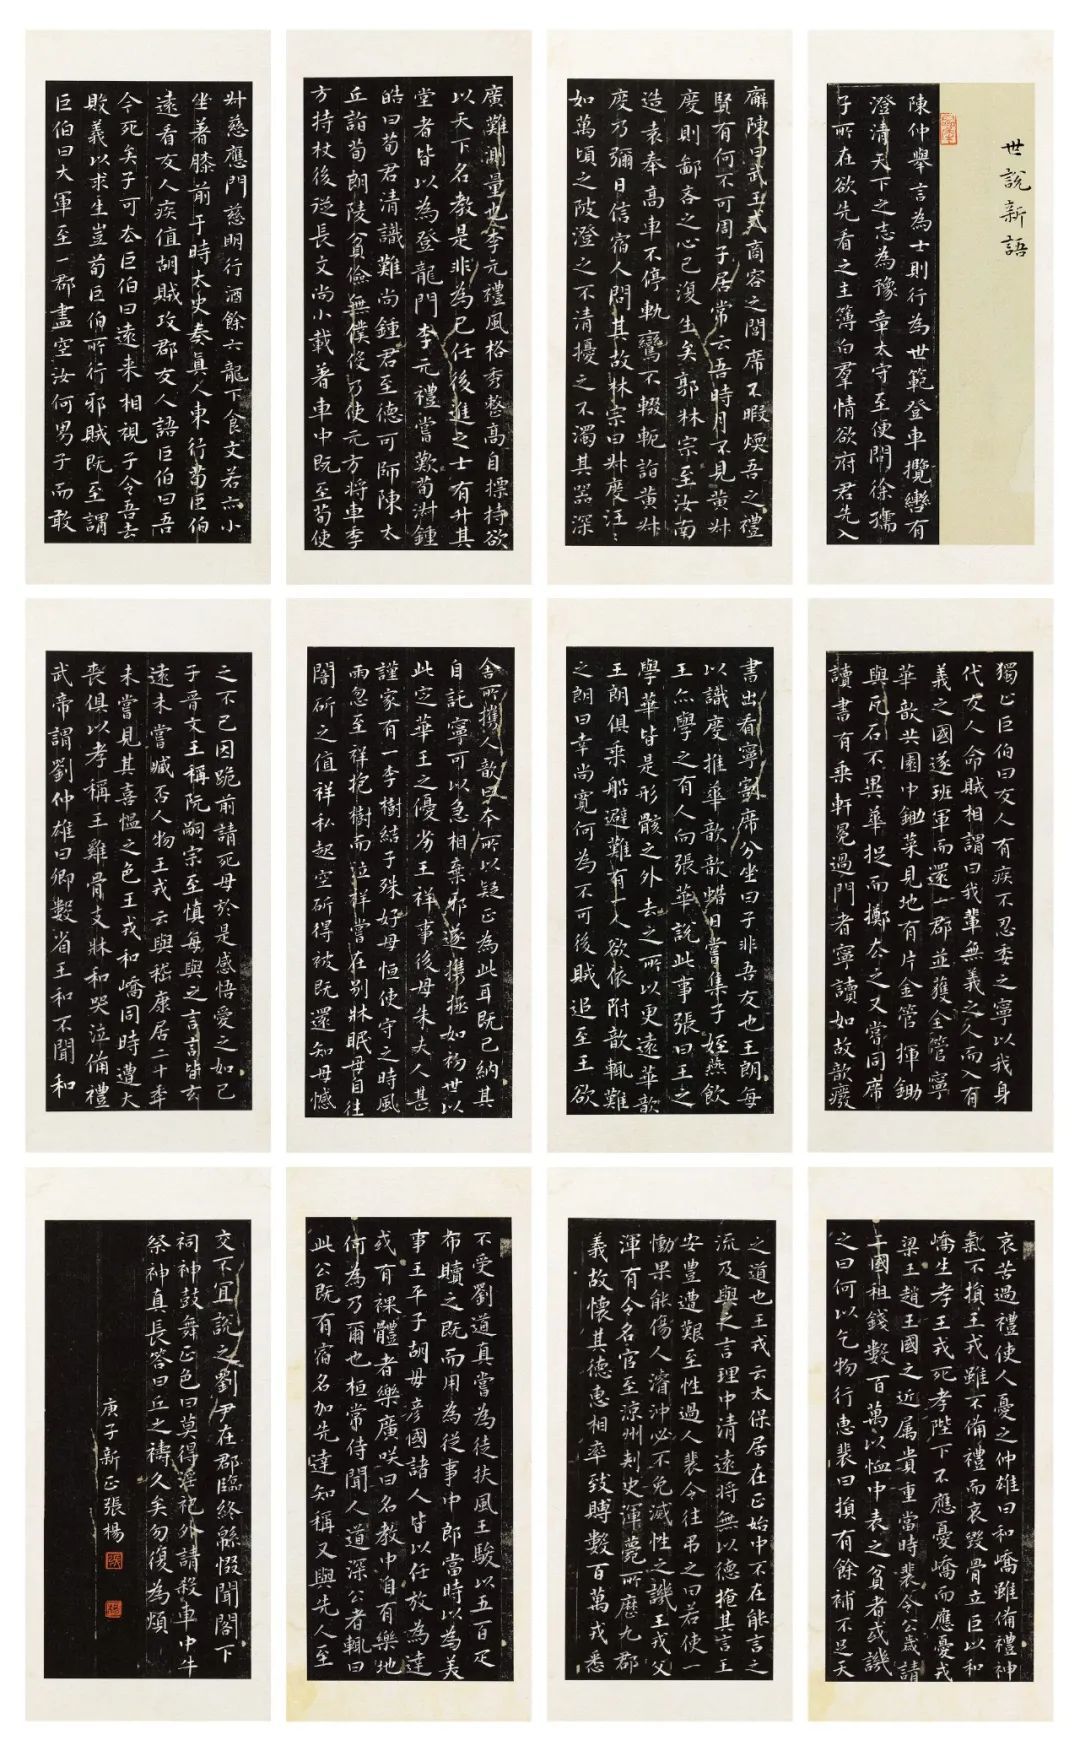 世說新語
陳仲舉言為士則行為世範登車攬轡有
澄清天下之志為豫章太守至便問徐孺
子所在欲先看之主簿白羣情欲府君先入
廨陳曰武王式商容之閭席不暇煖吾之禮
賢有何不可周子居常云吾時月不見黃叔
度則鄙吝之心已復生矣郭林宗至汝南
造袁奉高車不停軌鸞不輟軛詣黃叔
度乃彌日信宿人問其故林宗曰叔度汪〻
如萬頃之陂澄之不清擾之不濁其器深
廣難測量也李元禮風格秀整高自摽持欲
以天下名教是非為己任後進之士有升其
堂者皆以為登龍門李元禮嘗歎荀淑鍾
皓曰荀君清識難尚鍾君至德可師陳太
丘詣荀朗陵貧儉無僕役乃使元方將車季
方持杖後從長文尚小載著車中既至荀使
叔慈應門慈明行酒餘六龍下食文若亦小
坐著膝前于時太史奏真人東行荀巨伯
遠看友人疾值胡賊攻郡友人語巨伯曰吾
今死矣子可去巨伯曰遠來相視子令吾去
敗義以求生豈荀巨伯所行邪賊既至謂
巨伯曰大軍至一郡盡空汝何男子而敢
獨止巨伯曰友人有疾不忍委之寧以我身
代友人命賊相謂曰我輩無義之人而入有
義之國遂班軍而還一郡並獲全管寧
華歆共園中鋤菜見地有片金管揮鋤
與瓦石不異華捉而擲去之又嘗同席
讀書有乘軒冕過門者寧讀如故歆廢
書出看寧割席分坐曰子非吾友也王朗每
以識度推華歆歆蜡日嘗集子姪燕飲
王亦學之有人向張華說此事張曰王之
學華皆是形骸之外去之所以更遠華歆
王朗俱乘船避難有一人欲依附歆輒難
之朗曰幸尚寬何為不可後賊追至王欲
舍所攜人歆曰本所以疑正為此耳既已納其
自託寧可以急相棄邪遂攜拯如初世以
此定華王之優劣王祥事後母朱夫人甚
謹家有一李樹結子殊好母恒使守之時風
雨忽至祥抱樹而泣祥嘗在別牀眠母自往
闇斫之值祥私起空斫得被既還知母憾
之不已因跪前請死母於是感悟愛之如己
子晉文王稱阮嗣宗至慎每與之言言皆玄
遠未嘗臧否人物王戎云與嵇康居二十年
未嘗見其喜慍之色王戎和嶠同時遭大
喪俱以孝稱王雞骨支牀和哭泣備禮
武帝謂劉仲雄曰卿數省王和不聞和
哀苦過禮使人憂之仲雄曰和嶠雖備禮神
氣不損王戎雖不備禮而哀毀骨立臣以和
嶠生孝王戎死孝陛下不應憂嶠而應憂戎
梁王趙王國之近属貴重當時裴令公歲請
二國租錢數百萬以恤中表之貧者或譏
之曰何以乞物行惠裴曰損有餘補不足天
之道也王戎云太保居在正始中不在能言之
流及與之言理中清遠將無以德掩其言王
安豊遭艱至性過人裴令往弔之曰若使一
慟果能傷人濬沖必不免滅性之譏王戎父
渾有令名官至涼州刺史渾薨所歷九郡
義故懷其德惠相率致賻數百萬戎悉
不受劉道真嘗為徒扶風王駿以五百疋
布贖之既而用為從事中郎當時以為美
事王平子胡毋彥國諸人皆以任放為達
或有裸體者樂廣咲曰名教中自有樂地
何為乃爾也桓常侍聞人道深公者輒曰
此公既有宿名加先達知稱又與先人至
交不宜說之劉尹在郡臨終緜惙聞閣下
祠神鼓舞正色曰莫得淫祀外請殺車中牛
祭神真長答曰丘之禱久矣勿復為煩
庚子新正張楊